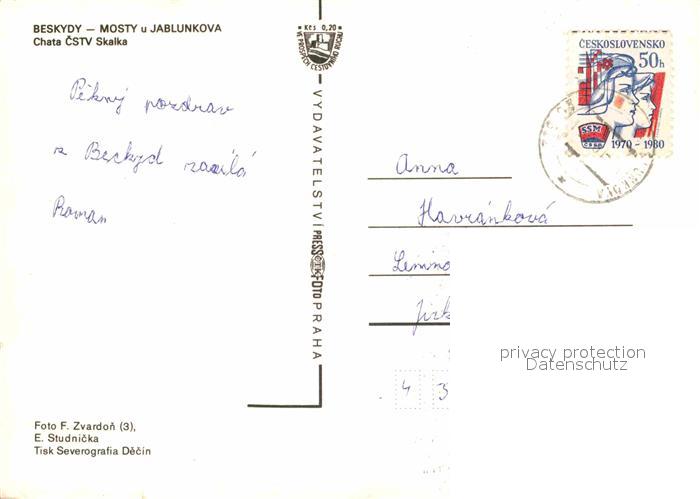 BESKYDY — MOSTY u JABLUNKOVA
Chata ČSTV Skalka
Pěkný pozdrav
z Beskyd zasílá
Roman
Kčs 0,20
VE PROSPĚCH CESTOVNÍHO RUCHU
VYDAVATELSTVÍ PRESSFOTO PRAHA
ČTK
ČESKOSLOVENSKO
50h
SSM
ČSSR
1970 - 1980
Anna
Havránková
Jirk
4 3
privacy protection
Datenschutz
Foto F. Zvardoň (3),
E. Studnička
Tisk Severografia Děčín